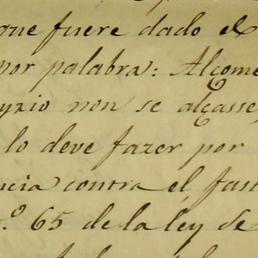 que fuere dado el
por palabra: Alcome
juyzio non se alçasse
lo deve fazer por
ncia contra el fas
n.º 65 de la ley de